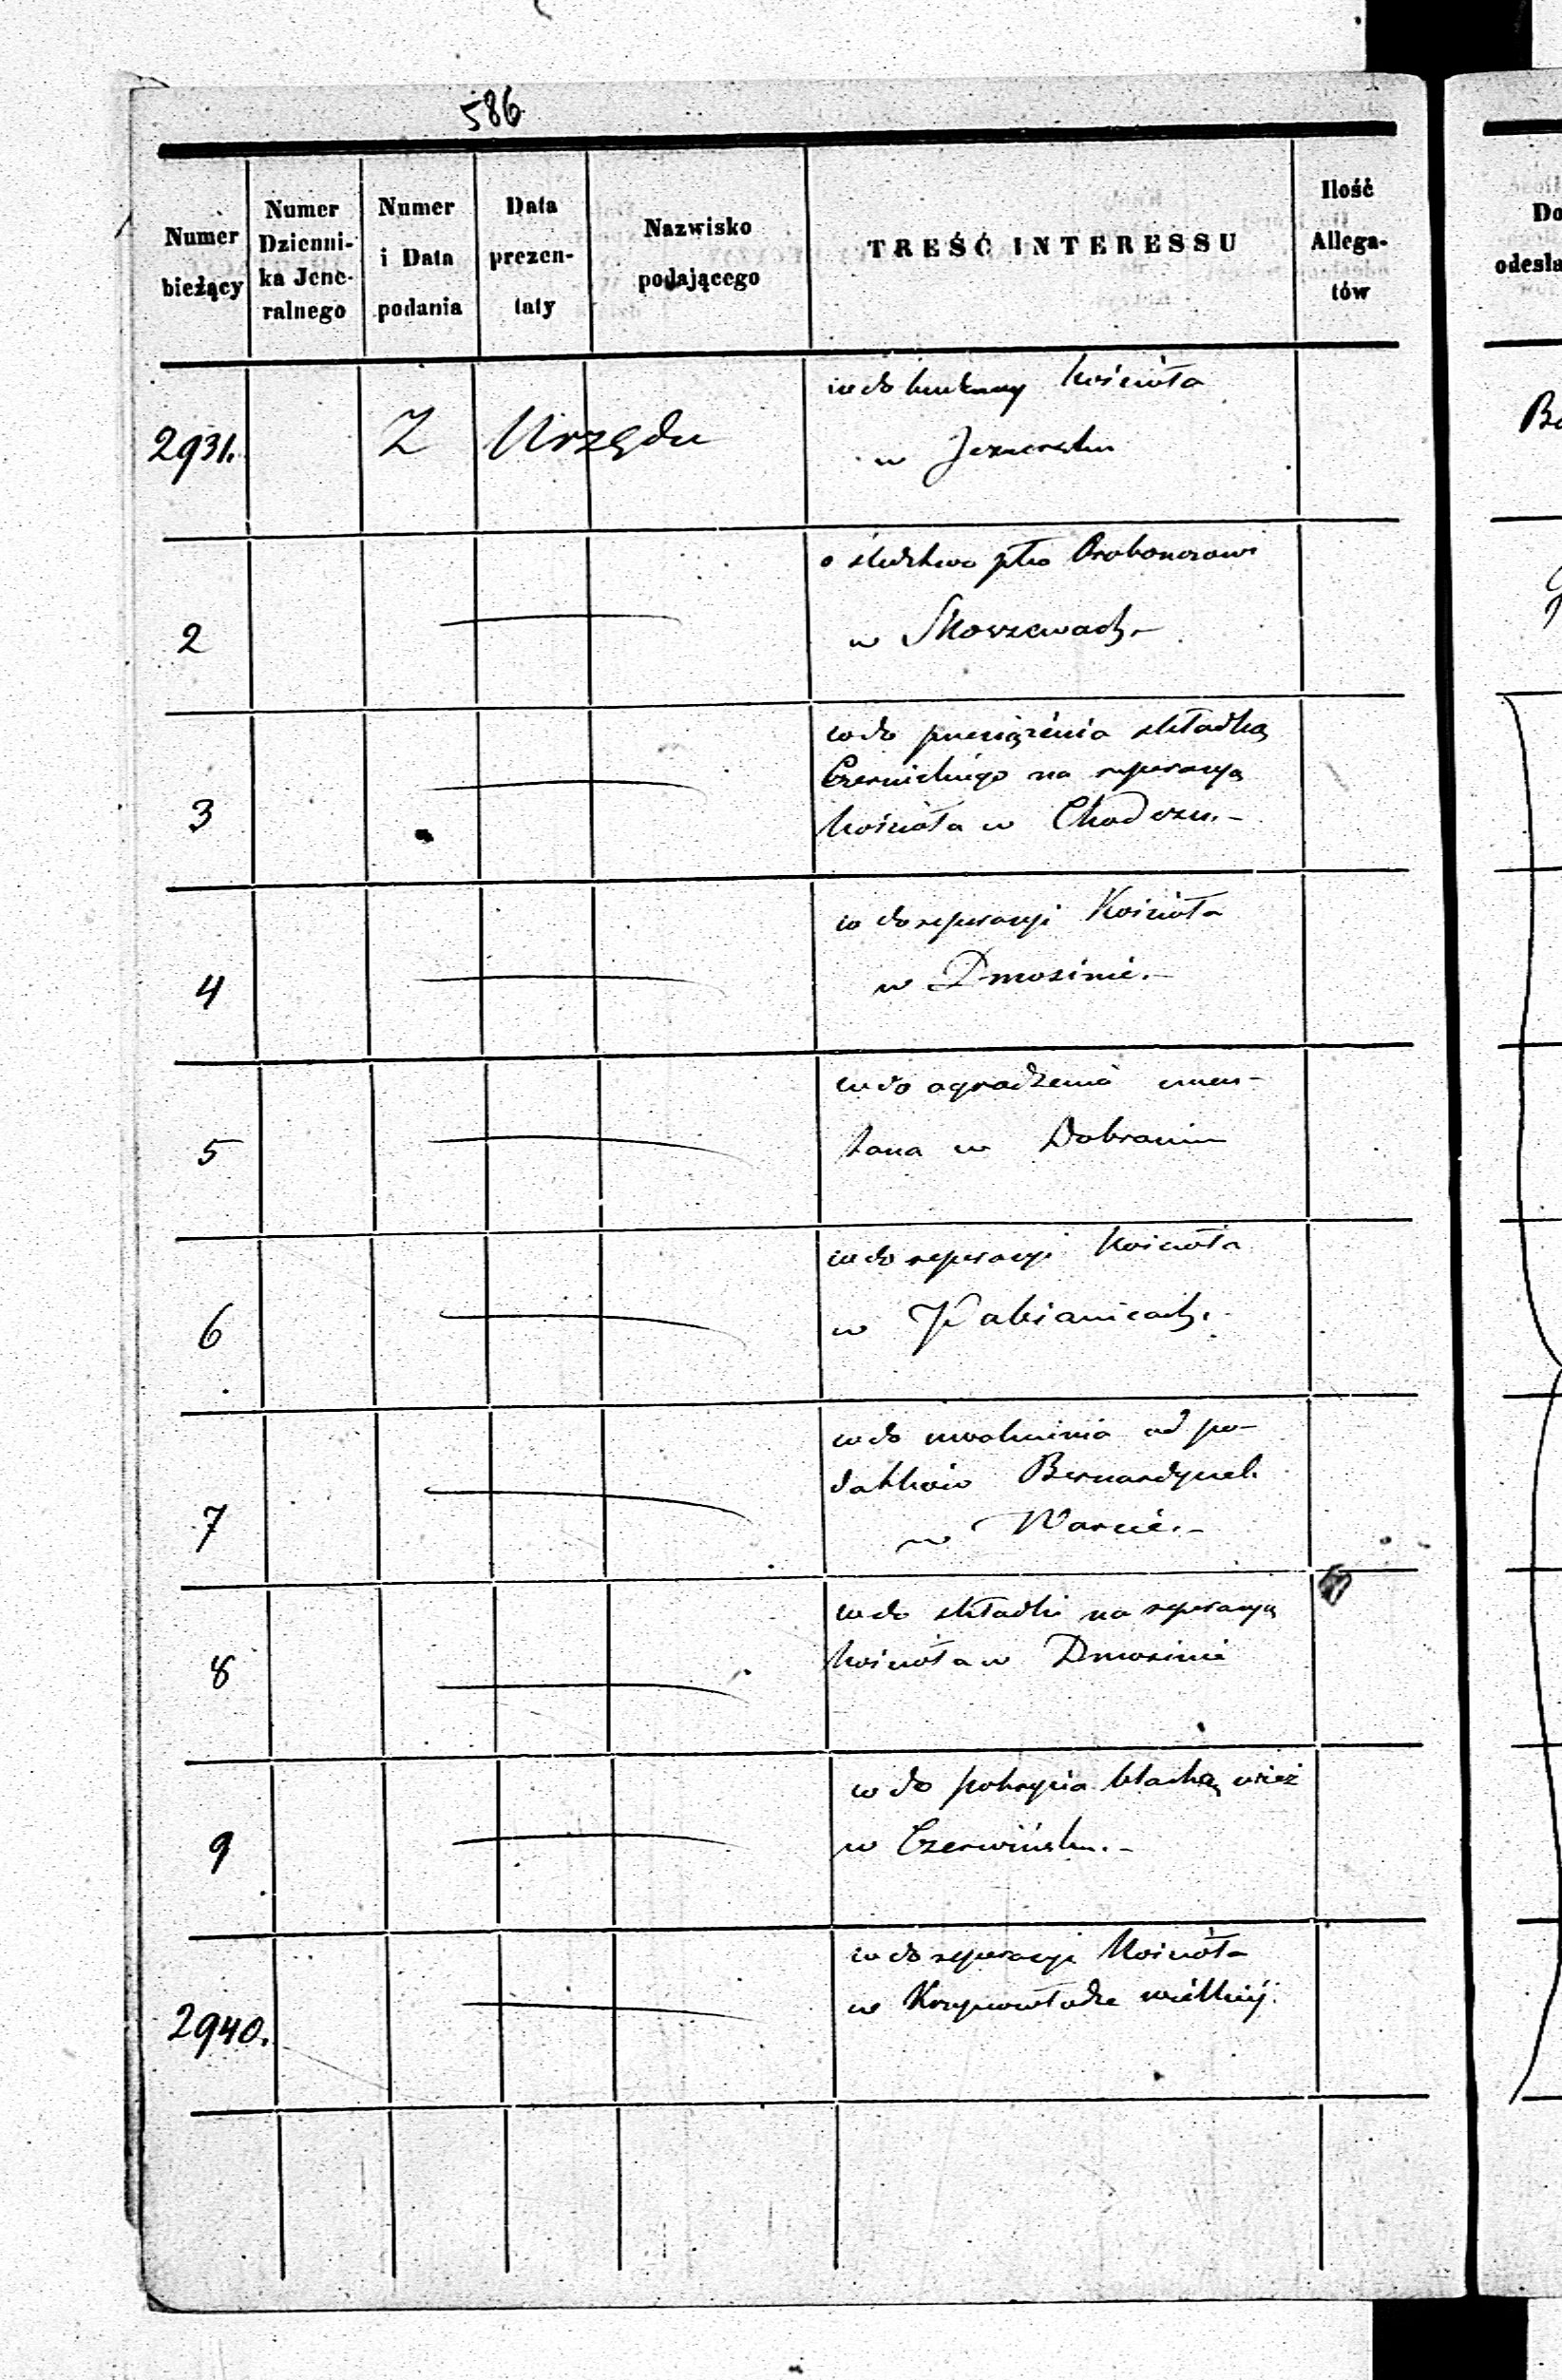 586
Numer bieżący
Numer Dzienni-ka Jene-ralnego
Numer i Data podania
Data prezen-taty
Nazwisko podającego
TREŚĆ INTERESSU
Ilość Allega-tów
Do
odesła
2931.
Z Urzędu
wdo budowy kościoła
w Jeżewsku
Bo
2
o śledztwo płko Proboszczowi
w Skoszewach.-
3
wdo
składką
Czernickiego na reperacyą
kościoła w Chodczu.-
4
wdo reperacyi Kościoła
w Dmosinie.-
5
wdo ogrodzenia cmen-
tarza w Dobroniu
6
wdo reperacyi kościoła
w Pabianicach.-
7
wdo uwolnienia od po-
datków Bernardynek
w Warcie.-
8
wdo składki na reperacyą
kościoła w Dmosinie
9
wdo pokrycia blachą wież
w Czerwińsku.-
2940.
wdo reperacyi Kościoła
w Krzywosłodze wielkiéj.